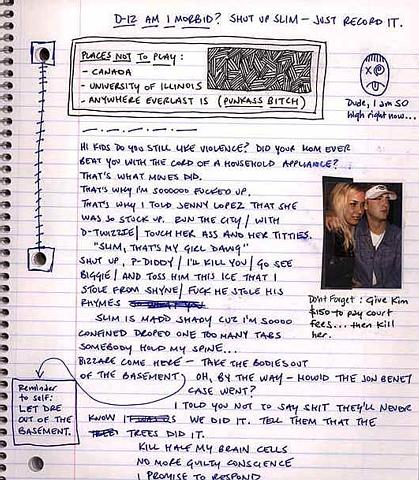 D-12 AM I MORBID? SHUT UP SLIM – JUST RECORD IT.
PLACES NOT TO PLAY:
- CANADA
- UNIVERSITY OF ILLINOIS
- ANYWHERE EVERLAST IS (PUNKASS BITCH)
Dude, I am SO
high right now...
HI KIDS DO YOU STILL LIKE VIOLENCE? DID YOUR MOM EVER
BEAT YOU WITH THE CORD OF A HOUSEHOLD APPLIANCE?
THAT'S WHAT MINES DID.
THAT'S WHY I'M SOOOOO FUCKED UP.
THAT'S WHY I TOLD JENNY LOPEZ THAT SHE
WAS SO STUCK UP. RUN THE CITY/ WITH
D-TWIZZIE/ TOUCH HER ASS AND HER TITTIES.
"SLIM, THAT'S MY GIRL DAWG"
SHUT UP, P-DIDDY/ I'LL KILL YOU/ GO SEE
BIGGIE/ AND TOSS HIM THIS ICE THAT I
STOLE FROM SHYNE/ FUCK HE STOLE HIS
RHYMES
SLIM IS MADD SHADY CUZ I'M SOOOO
CONFINED DROPED ONE TOO MANY TABS
SOMEBODY HOLD MY SPINE...
BIZZARE COME HERE – TAKE THE BODIES OUT
OF THE BASEMENT
OH, BY THE WAY – HOW'D THE JON BENET
CASE WENT?
I TOLD YOU NOT TO SAY SHIT THEY'LL NEVER
KNOW WE DID IT. TELL THEM THAT THE
TREES DID IT.
KILL HALF MY BRAIN CELLS
NO MORE GUILTY CONSCIENCE
I PROMISE TO RESPOND
Don't Forget: Give Kim
$150 to pay court
fees... then kill
her.
Reminder
to self:
LET DRE
OUT OF THE
BASEMENT.